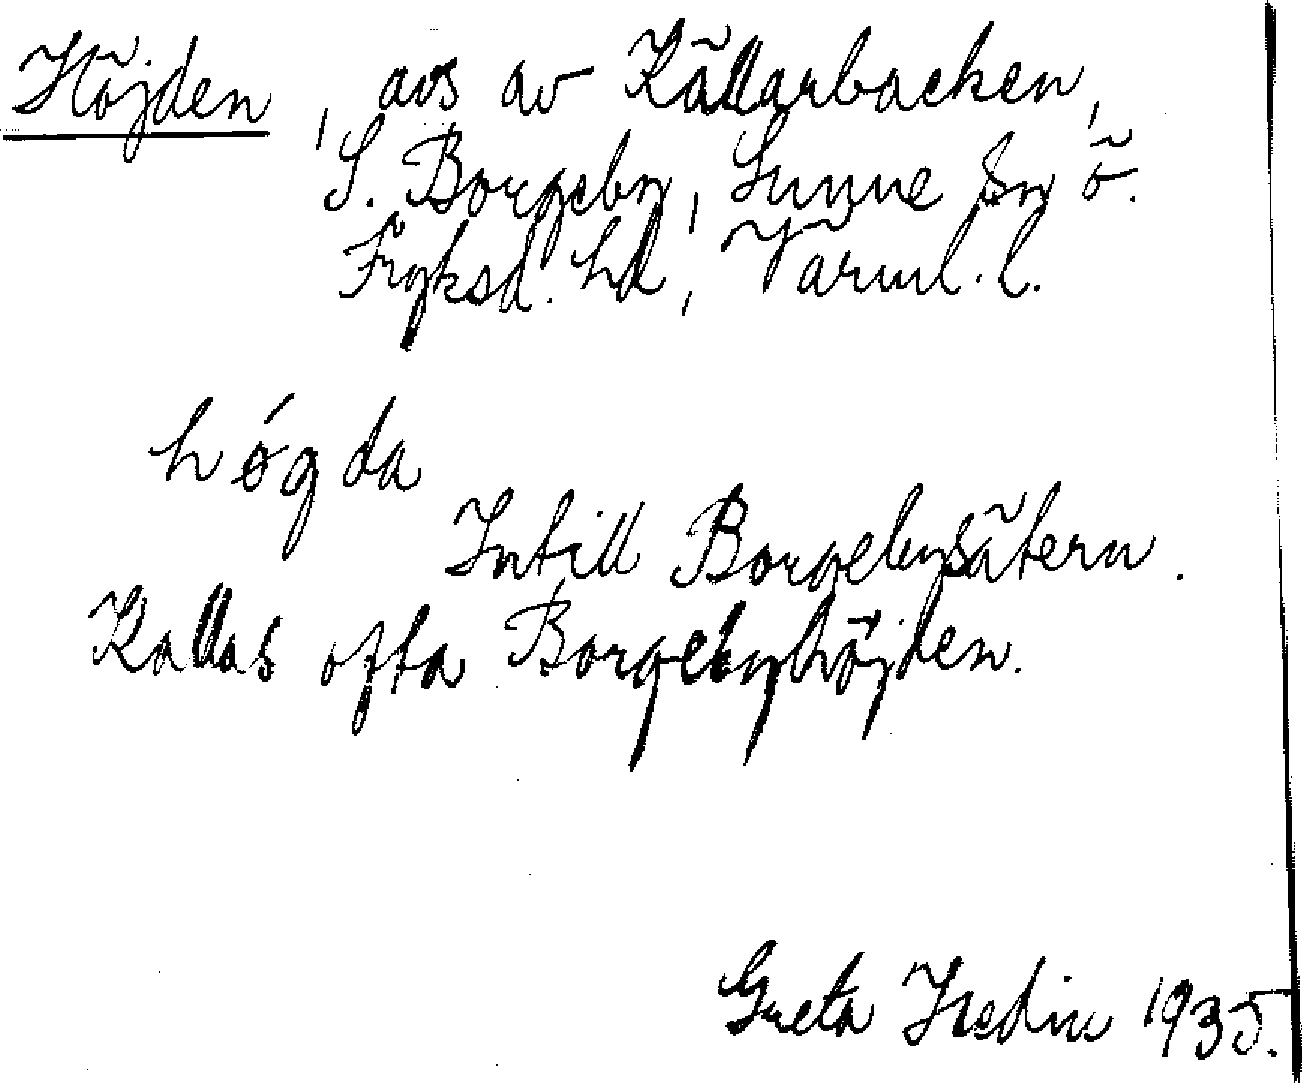 Höjden, avs av Källarbacken,
S. Borgeby, Sunne sn Ö.
Fryksd. hd, Värml. l.
hǿgda
Intill Borgebysätern.
Kallas ofta Borgebyhöjden.
Greta Hedin 1935.